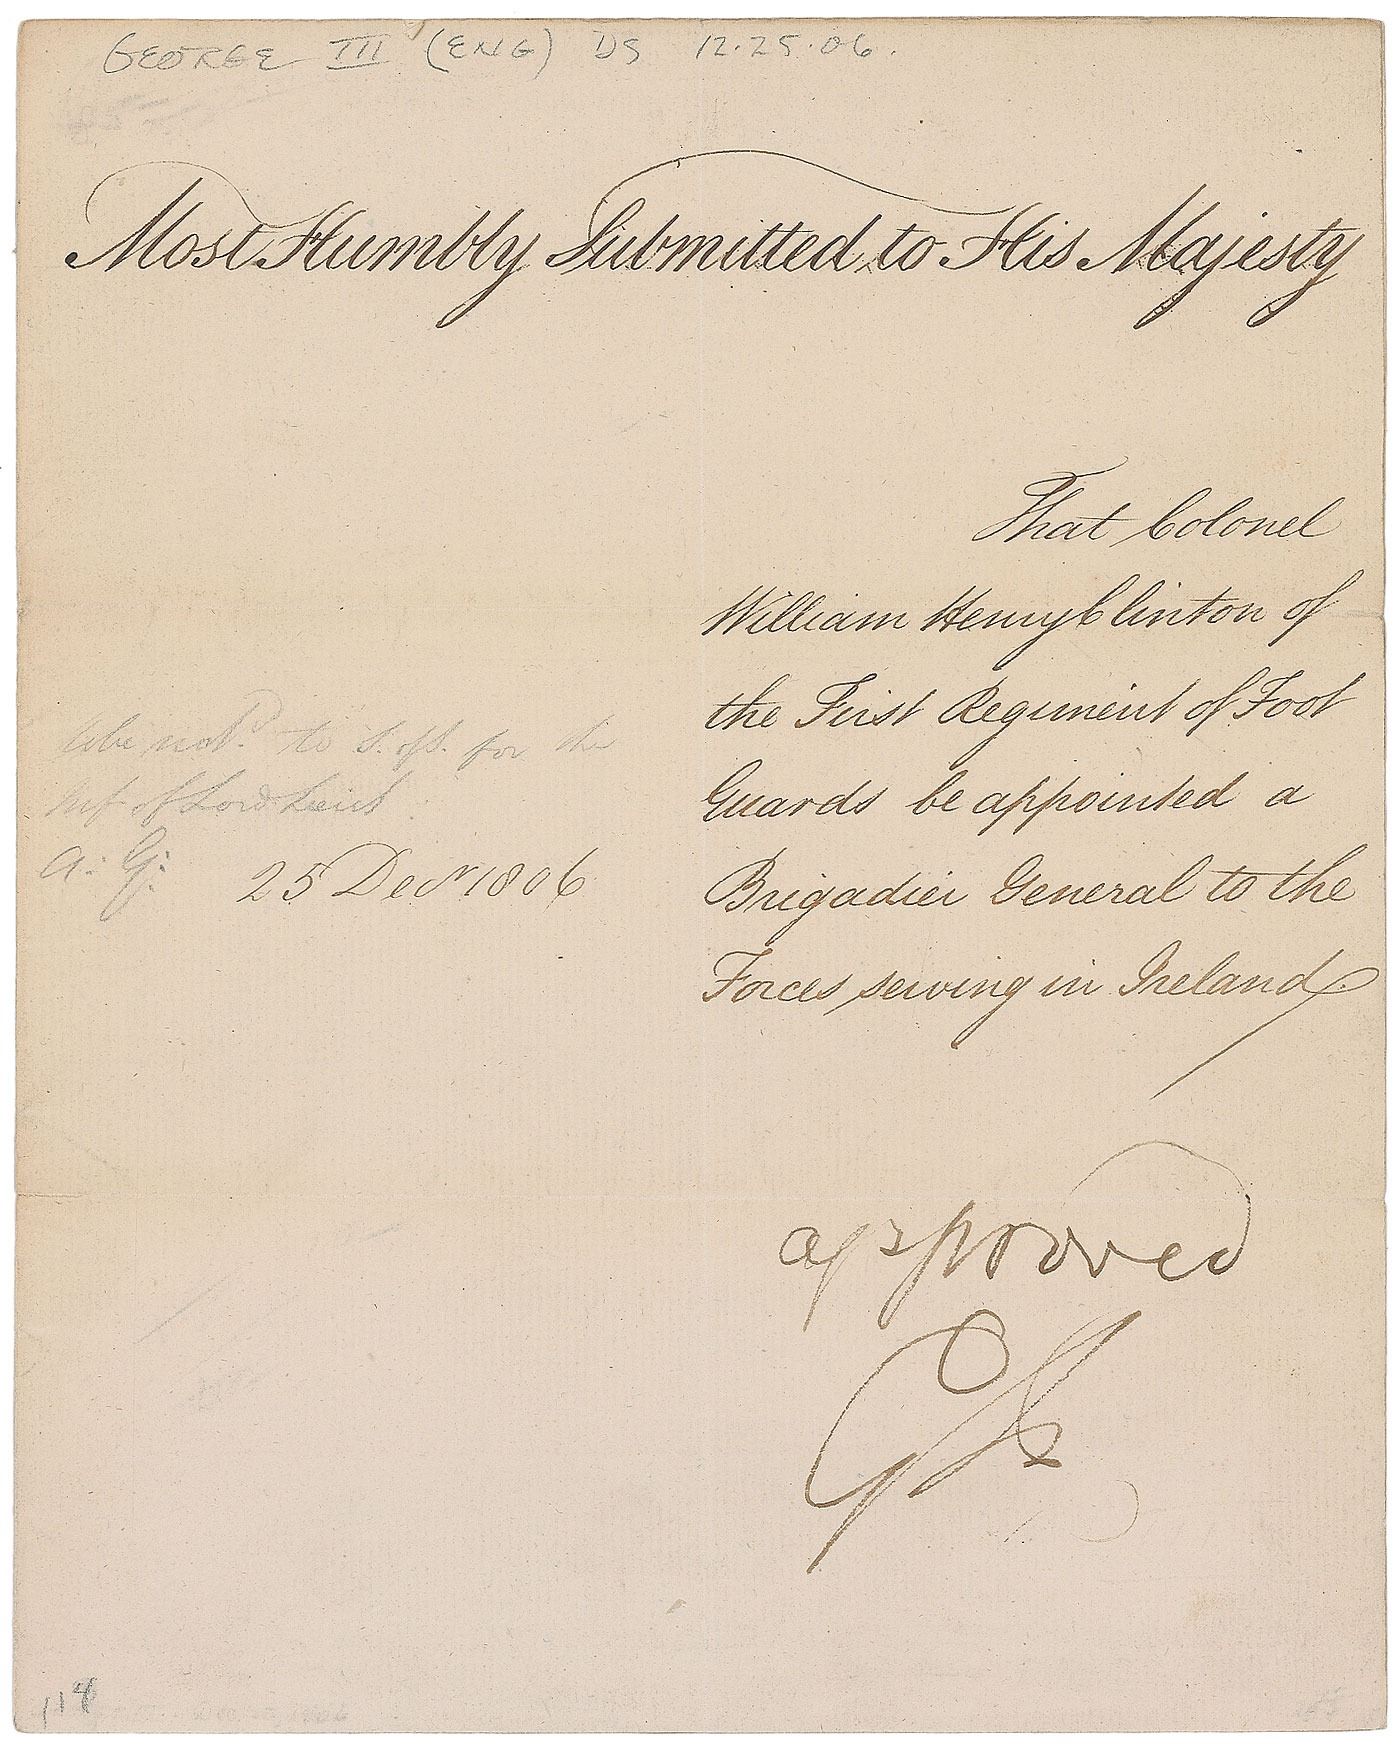 GEORGE III (ENG) DS 12.25.06.
Most Humbly Submitted to His Majesty
That Colonel
William Henry Clinton of
the First Regiment of Foot
Guards be appointed a
Brigadier General to the
Forces serving in Ireland.
to be not.d to S. of S. for the
Inf. of Lord Lieut.
A: G:
25 Decr 1806
approved
GR
118